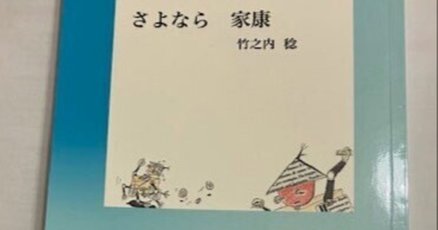 さよなら　家康
竹之内 稔